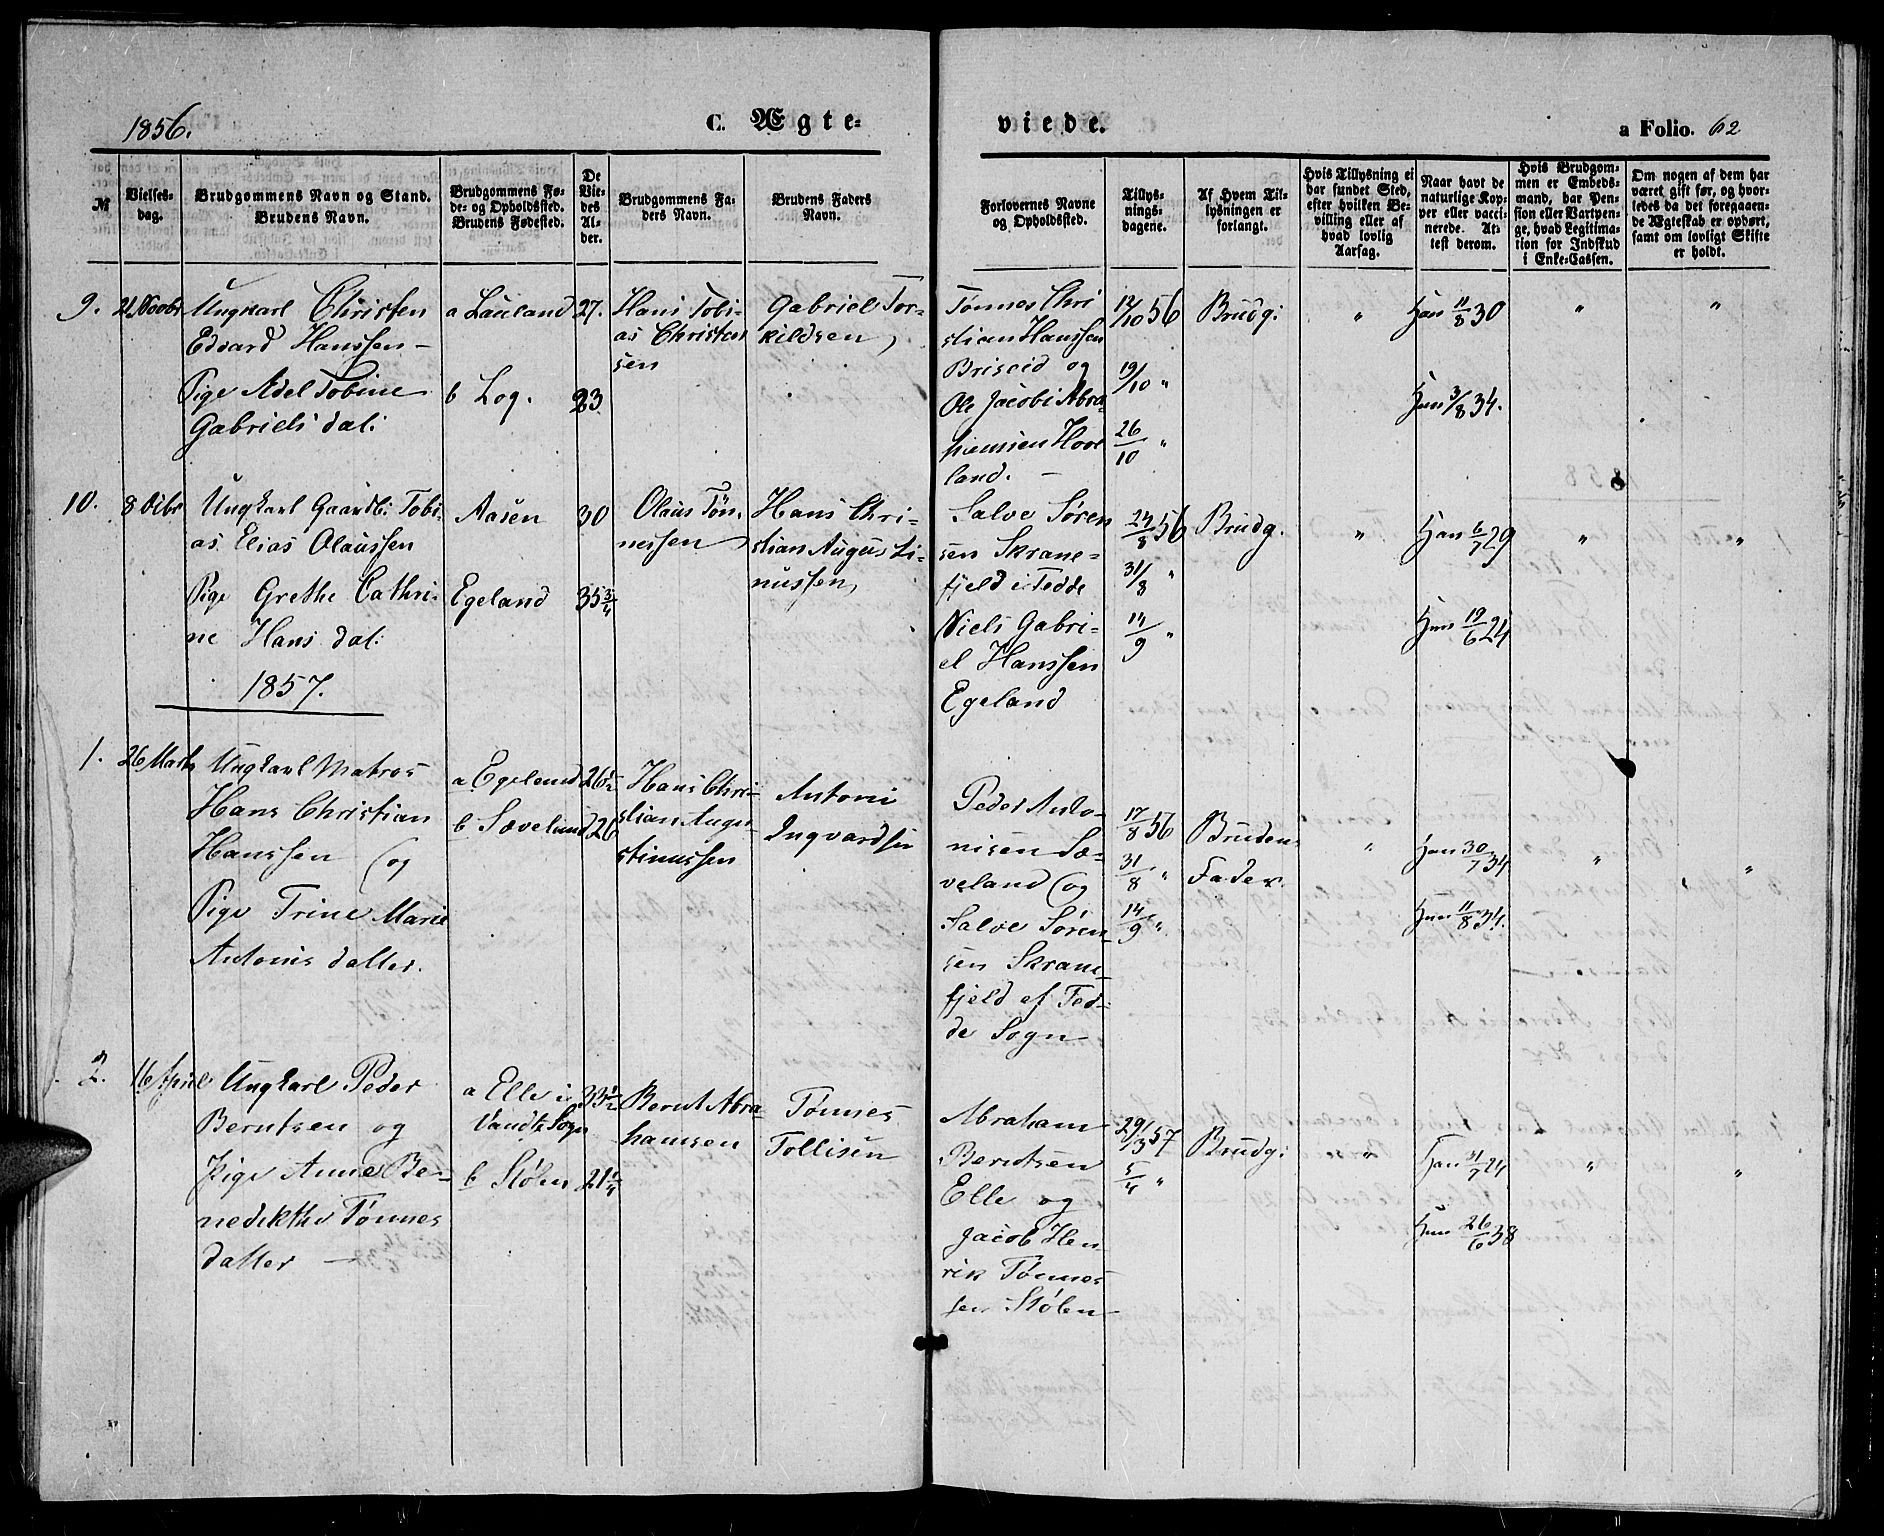 1856.
C. Ægte-
viede.
a Folio. 62
№
Vielses-
dag.
Brudgommens Navn og Stand.
Brudens Navn.
Brudgommens Fø-
de- og Opholdssted.
Brudens Fødested.
De
Vie-
des
Al-
der.
Brudgommens Fa-
ders Navn.
Brudens Faders
Navn.
Forlovernes Navne
og Opholdssted.
Tillys-
nings-
dagene.
Af Hvem Til-
lysningen er
forlangt.
Hvis Tillysning ei
har fundet Sted,
efter hvilken Be-
villing eller af
hvad lovlig
Aarsag.
Naar havt de
naturlige Kop-
per eller vacci-
nerede. At-
test derom.
Hvis Brudgom-
men er Embeds-
mand, har Pen-
sion eller Vartpen-
ge, hvad Legitima-
tion for Indskud
i Enke-Cassen.
Om nogen af dem har
været gift før, og hvor-
ledes da det foregaaen-
de Ægteskab er ophørt,
samt om lovligt Skifte
er holdt.
9.
21 Novbr
Ungkarl Christen
Edvard Hanssen -
Pige Adel Tobine
Gabriels dal:
a Lauland
b Log.
27.
23
Hans Tobi-
as Christen
sen
Gabriel Tor-
kildsen
Tønnes Chri
stian Hanssen
Briseid og
Ole Jacob: Abra-
hamsen Hove
land. -
12/10 56
19/10 "
26/10 "
Brudg:
"
Han 11/8 30
Hun 3/8 34.
"
"
10.
8
Ungkarl Gaardb: Tobi-
as Elias Olaussen
Pige Grethe Cathri-
ne Hans dal:
Aasen
Egeland
30
35 3/4
Olaus Tøn-
nessen
Hans Chri-
stian Augusti-
nussen
Salve Søren
sen Skrane-
fjeld i Fedde
Niels Gabri-
el Hanssen
Egeland
24/8 56
31/8 "
14/9 "
Brudg.
"
Han 6/7 29
Hun 19/6 24
"
"
1857.
1.
26 Marts
Ungkarl Matros
Hans Christian
Hanssen og
Pige Trine Marie
Antonis datter.
a Egeland
b Sæveland
26 1/2
26
Hans Chri-
stian Augu-
stinussen
Antoni
Ingvardsen
Peder Anto-
nisen Sæ-
veland og
Salve Søren-
sen Skrane-
fjeld af Fed-
de Sogn
17/8 56
31/8 "
14/9 "
Brudens
Fader.
"
Han 30/7 34
Hun 11/8 34.
"
"
2.
16 April
Ungkarl Peder
Berntsen og
Pige Anne Be-
nedikthe Tønnes
datter -
a Elle i
Vands Sogn
b Stølen
33 1/2
21 1/4
Bernt Abra-
hamsen
Tønnes
Tollisen
Abraham
Berntsen
Elle og
Jacob Hen
rik Tønnes
sen Stølen
29/3 57
5/4 "
Brudg:
"
Han 31/7 24
Hun 26/6 38
"
"